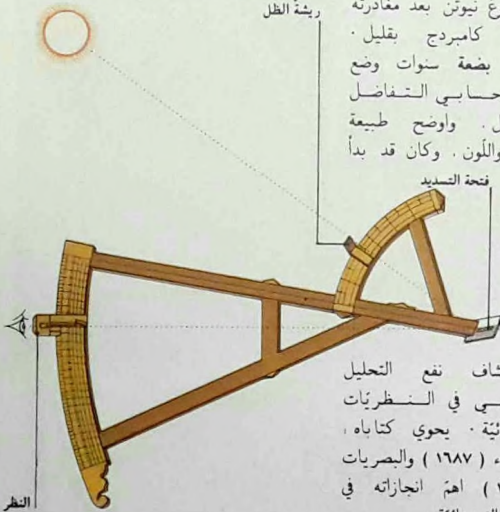 نيوتن بعد مغادرته
ريشة الظل
كامبردج بقليل .
بضعة سنوات وضع
حسابي التفاضل
واوضح طبيعة
واللّون . وكان قد بدأ
فتحة التسديد
نفع التحليل
في النظريّات
يحوي كتاباه ،
( ١٦٨٧ ) والبصريات
) اهمّ انجازاته في
النظر